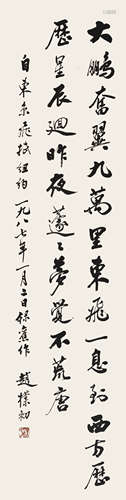 大鹏奮翼九萬里東飛一息到西方歷
歷星辰迴昨夜蘧蘧夢覺不荒唐
自東京飛抵紐約一九八七年一月二日保盦作 趙樸初